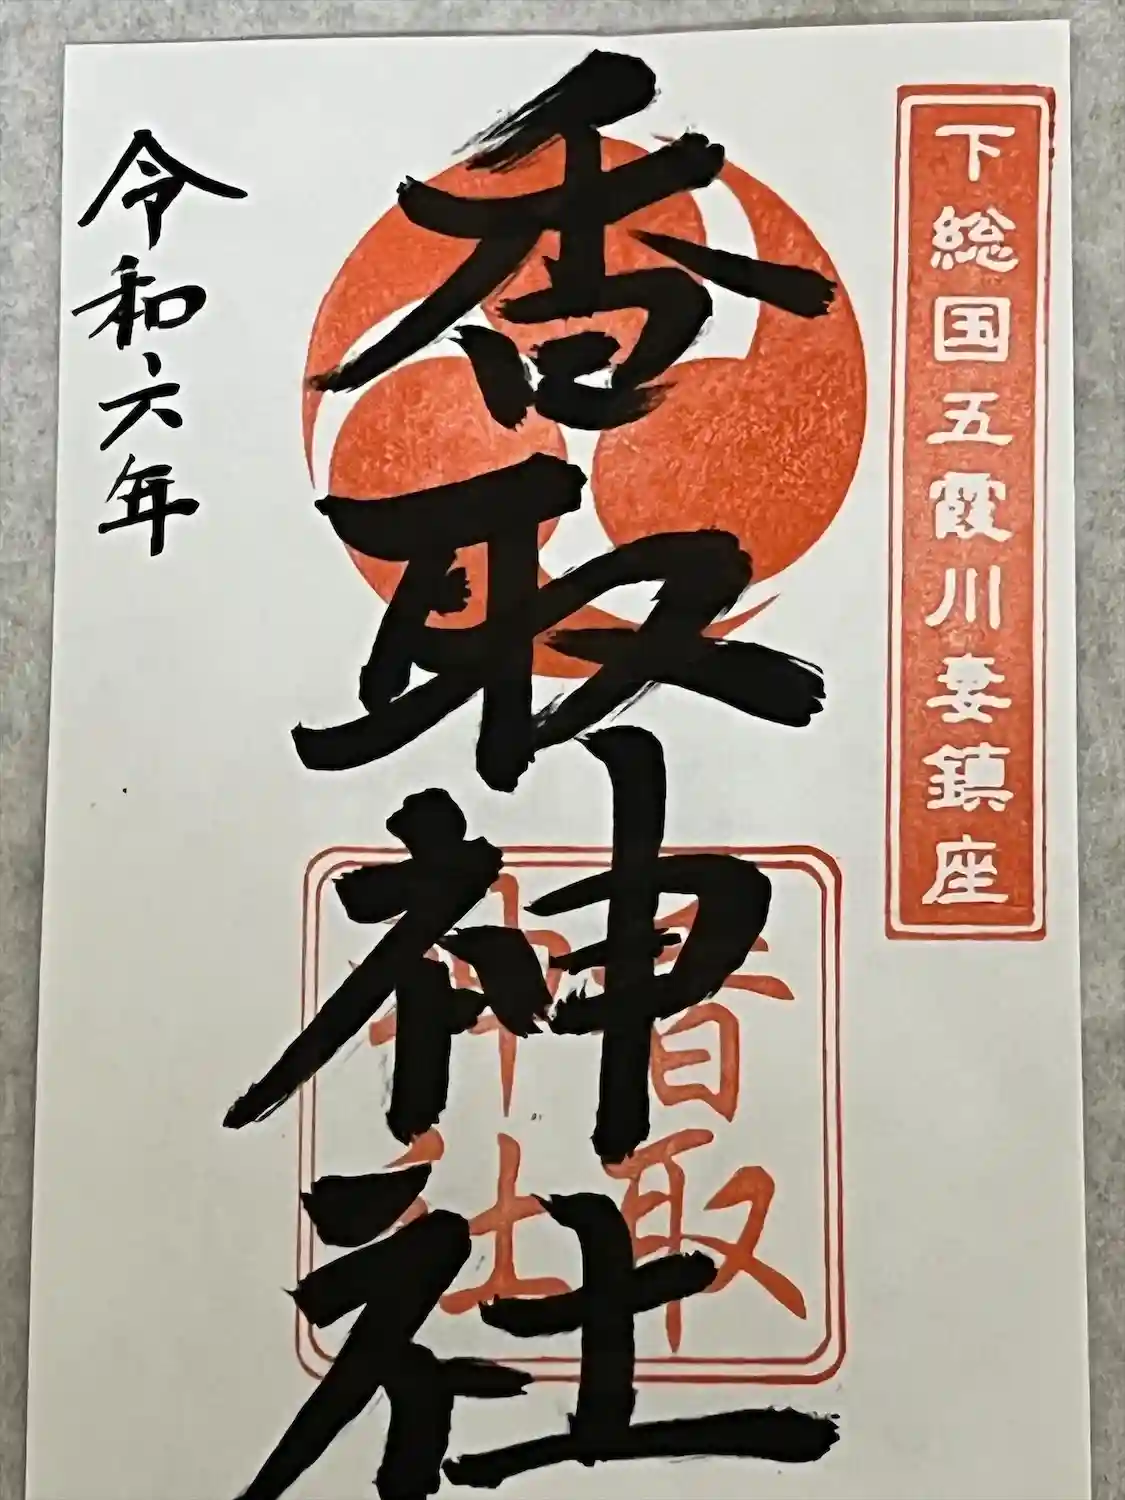 下総国五霞川妻鎮座
香取神社
香取
神社
令和六年